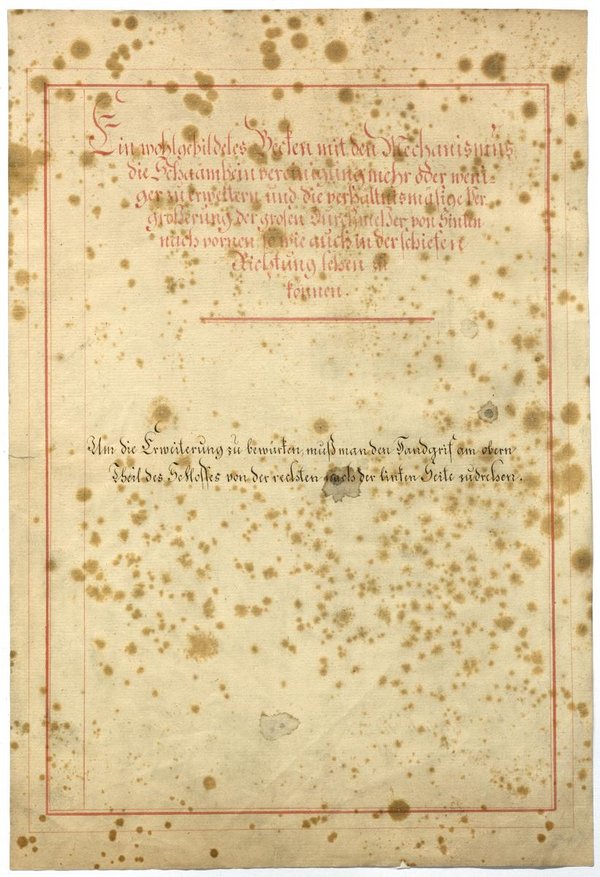 Ein wohlgebildetes Becken mit den Mechanismus,
die Schaambein vereinigung mehr oder weni-
ger zu erweitern und die verhältnismäsige Ver
größerung der grosen Durchmesser, von hinten
nach vornen so wie auch in der schiefen
Richtung sehen zu
können.
Um die Erweiterung zu bewürken, muß man den Handgrif am obern
Theil des Schlosses von der rechten nach der linken Seite zudrehen.